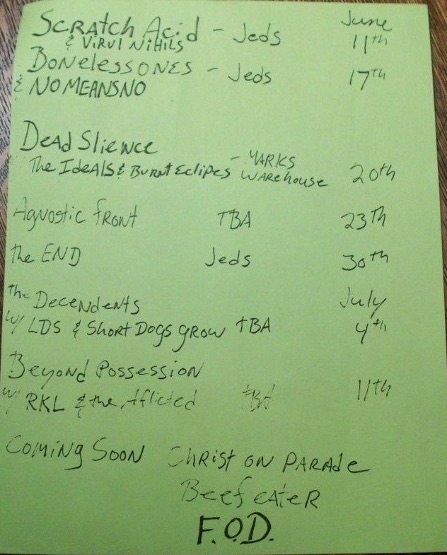 Scratch Acid - Jeds June
& Virul Nihils 11th
Bonelessones - Jeds 17th
& NOMEANSNO
Dead Slience
The Ideals & Burnt Eclipes - YARKS WAREHOUSE 20th
Agnostic front TBA 23th
the END Jeds 30th
the Decendents July
w/ LDS & Short Dogs grow tBA 4th
Beyond Possession
w/ RKL & the Aflicted tBA 11th
Coming Soon Christ on Parade
Beefeater
F.O.D.